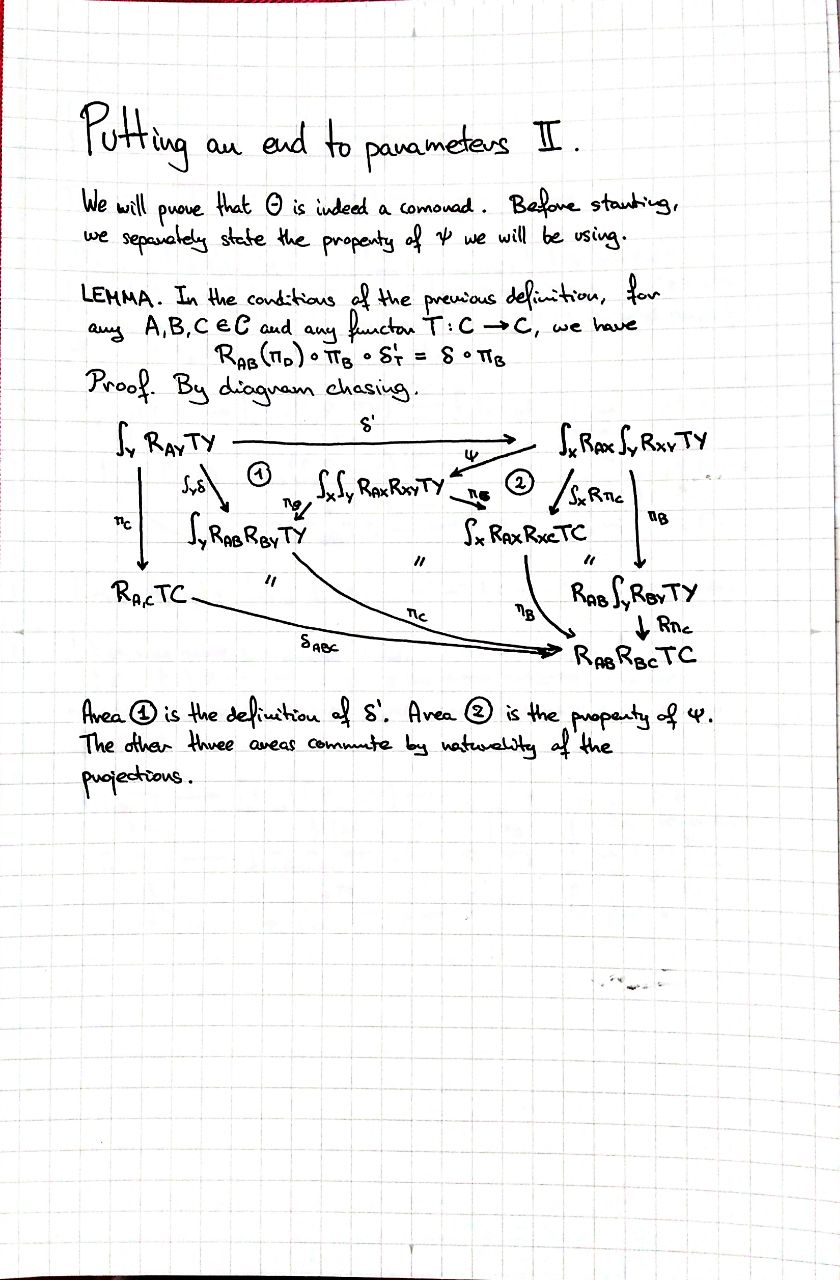 Putting an end to parameters II.
We will prove that Θ is indeed a comonad. Before starting,
we separately state the property of ψ we will be using.
LEMMA. In the conditions of the previous definition, for
any A,B,C ∈ C and any functor T : C → C, we have
R_AB(π_D) ∘ π_B ∘ δ'_T = δ ∘ π_B
Proof. By diagram chasing.
δ'
∫_Y R_AY TY ∫_X R_AX ∫_Y R_XY TY
ψ
∫_Y δ ① ∫_X ∫_Y R_AX R_XY TY ② ∫_X Rπ_C
π_C π_B π_B
∫_Y R_AB R_BY TY ∫_X R_AX R_XC TC
" " "
R_A,C TC π_C π_B R_AB ∫_Y R_BY TY
δ_ABC Rπ_C
R_AB R_BC TC
Area ① is the definition of δ'. Area ② is the property of ψ.
The other three areas commute by naturality of the
projections.